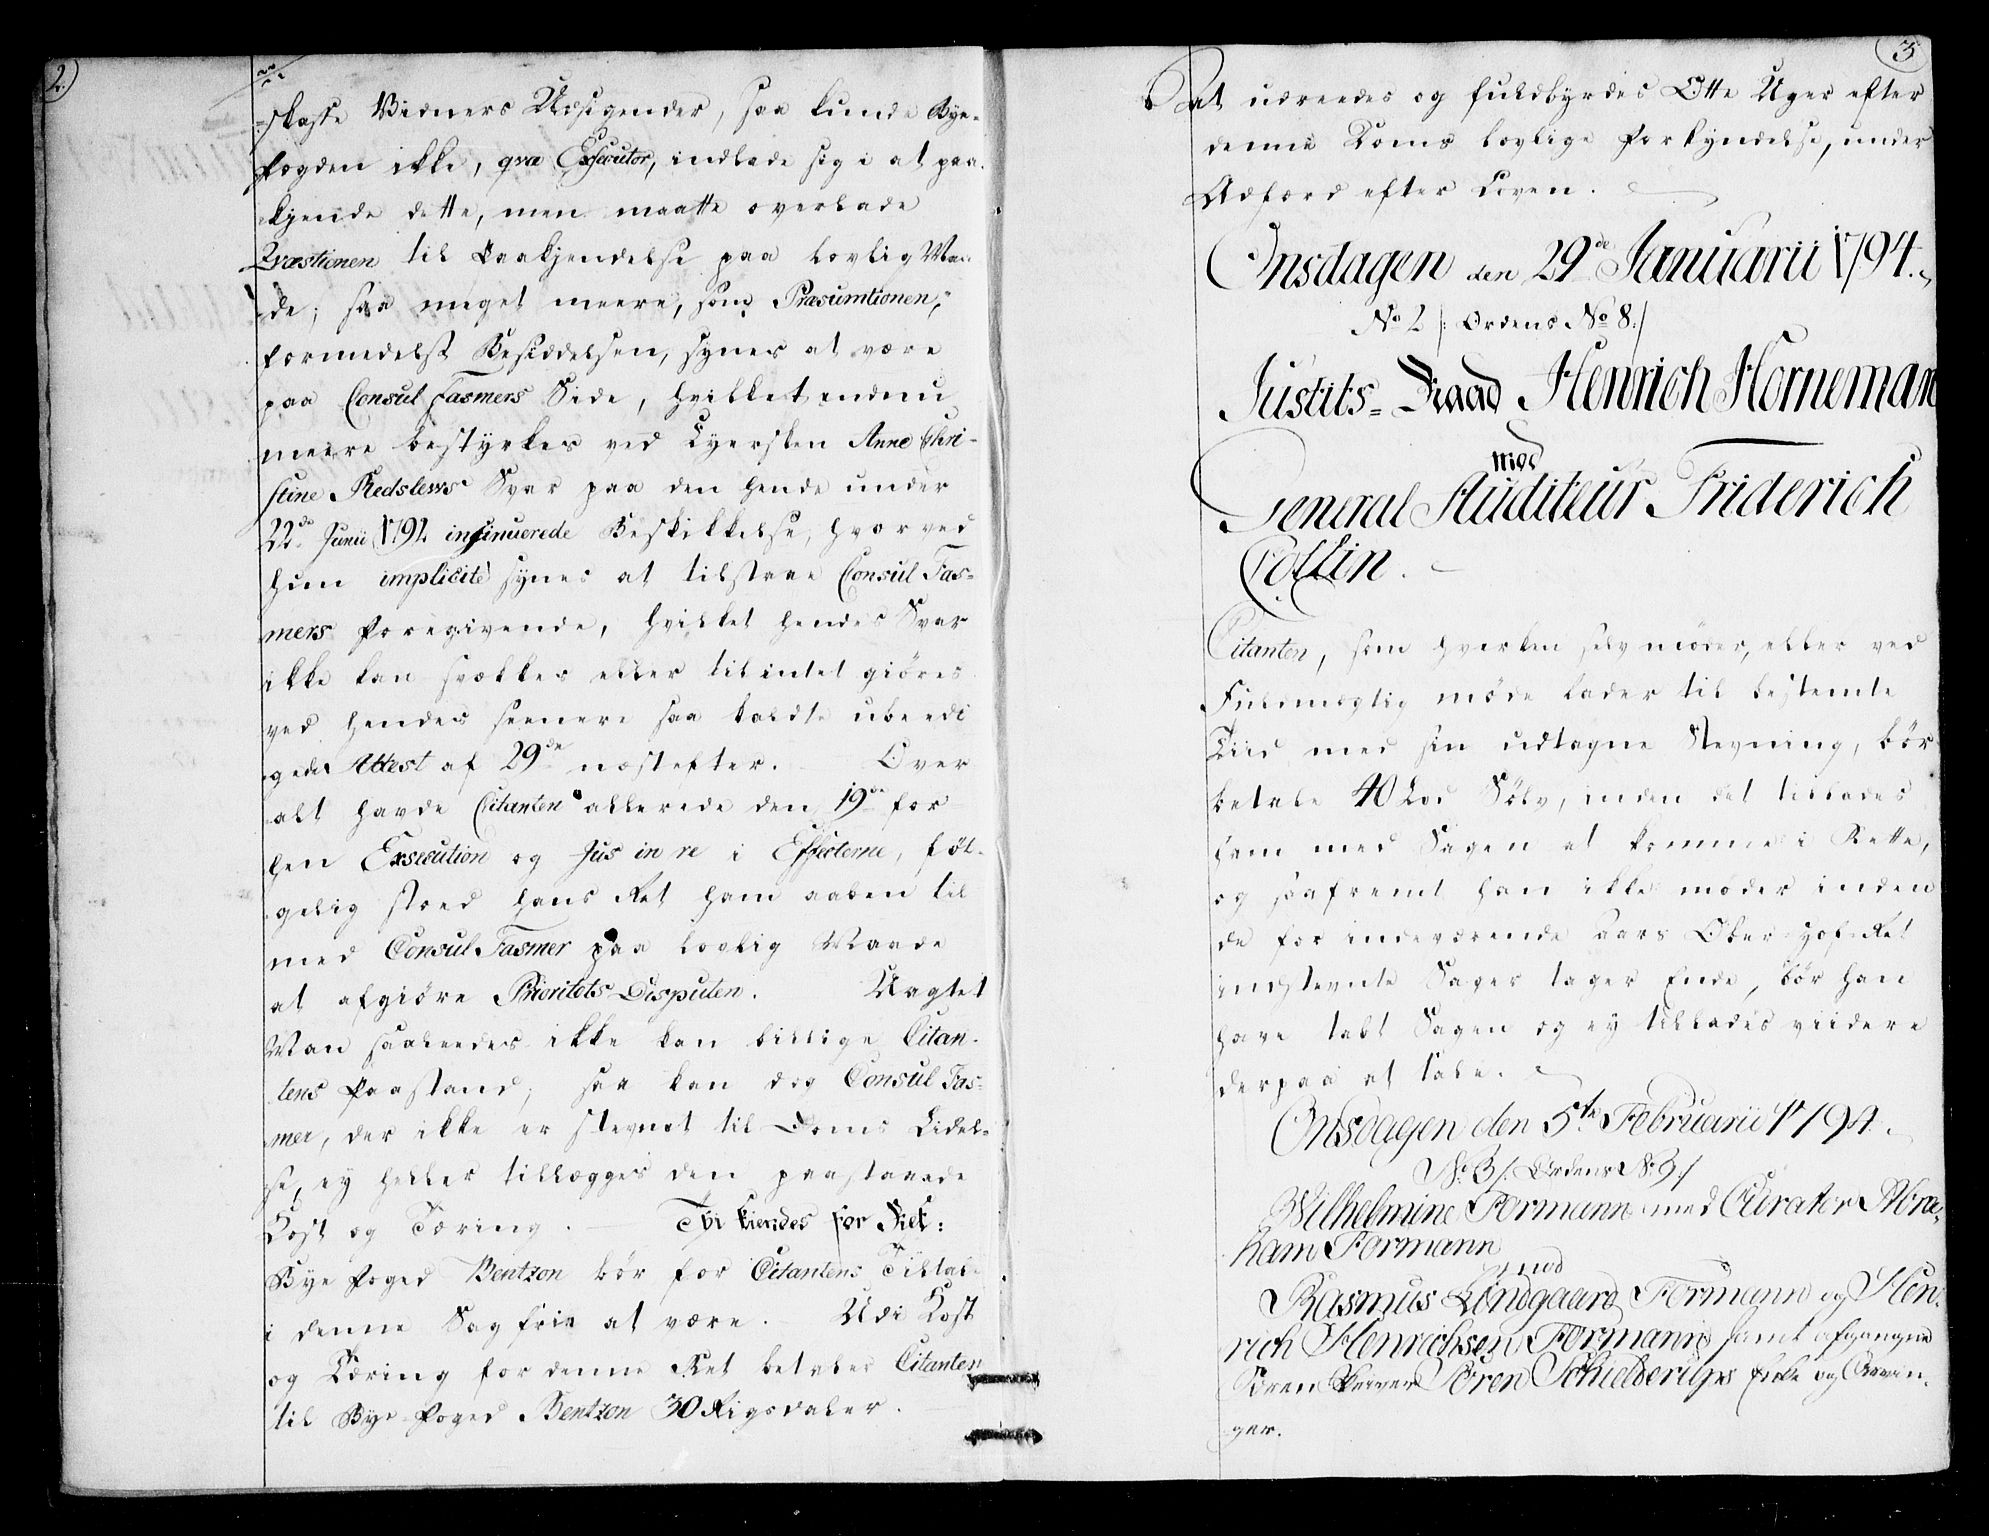 2.
skafte Vidners Udsigender, saa kunde Bye-
fogden ikke, qva Executor, indlade sig i at paa-
kjende dette, men maatte overlade
Qvæstionen til Paakjendelse paa lovlig Maa-
de; saa meget meere, som Præsumtionen,
formedelst Besiddelsen, synes at være
paa Consul Fasmers Side, hvilket endnu
meere bestyrkes ved Tyersken Anne Chri-
stine Redslews Svar paa den hende under
22de Junii 1792 insinuerede Beskikkelse, hvorved
hun implicité synes at tilstaae Consul Fas-
mers Foregivende, hvilket hendes Svar
ikke kan svækkes eller tilintetgiöres
ved hendes seenere saa kaldte ubeedi-
gede Attest af 29de næstefter. Over
alt havde Citanten allerede den 19de for
hen Exsecution og Jus in re i Effecterne, föl-
gelig stoed hans Ret ham aaben til
med Consul Fasmer paa lovlig Maade
at afgiöre Prioritets-Disputen. Uagtet
Man saaleedes ikke kan billige Citan-
tens Paastand; saa kan dog Consul Fas-
mer, der ikke er stevnet til Doms Lidel-
se, ey heller tillægges den paastaaede
Kost og Tæring. Thi kiendes for Ret:
Bye-Foged Bentzon bör for Citantens Tiltale
i denne Sag frie at være. Udi Kost
og Tæring for denne Ret betaler Citanten
til Bye-Foged Bentzon 30 Rigsdaler.
3
at udreedes og fuldbyrdes Otte Uger efter
denne Doms lovlige Forkyndelse, under
Adfærd efter Loven.
Onsdagen den 29de Januarii 1794.
No 2 /: Ordens No 8:/
Justits-Raad Henrich Horneman
mod
General Auditeur Friderich
Collin.
Citanten, som hverken selv möder, eller ved
Fuldmægtig möde lader til bestemte
Tiid med sin udtagne Stevning, bör
betale 40 Lod Sölv, inden det tillades
ham med Sagen at komme i Rette,
og saafremt han ikke möder inden
de for indeværende Aars Ober-Hof-Ret
indstevnte Sager tager Ende, bör han
have tabt Sagen og ey tillades viidere
derpaa at tale.
Onsdagen den 5te Februarii 1794.
No 3 /: Ordens No 9:/
Wilhelmine Formann med Curator Abra-
ham Formann
mod
Rasmus Lindgaard Formann og Hen-
rich Henrichsen Formann samt afgangne
Soren Skriver Sören Schielderups Enke og Arvin-
ger.